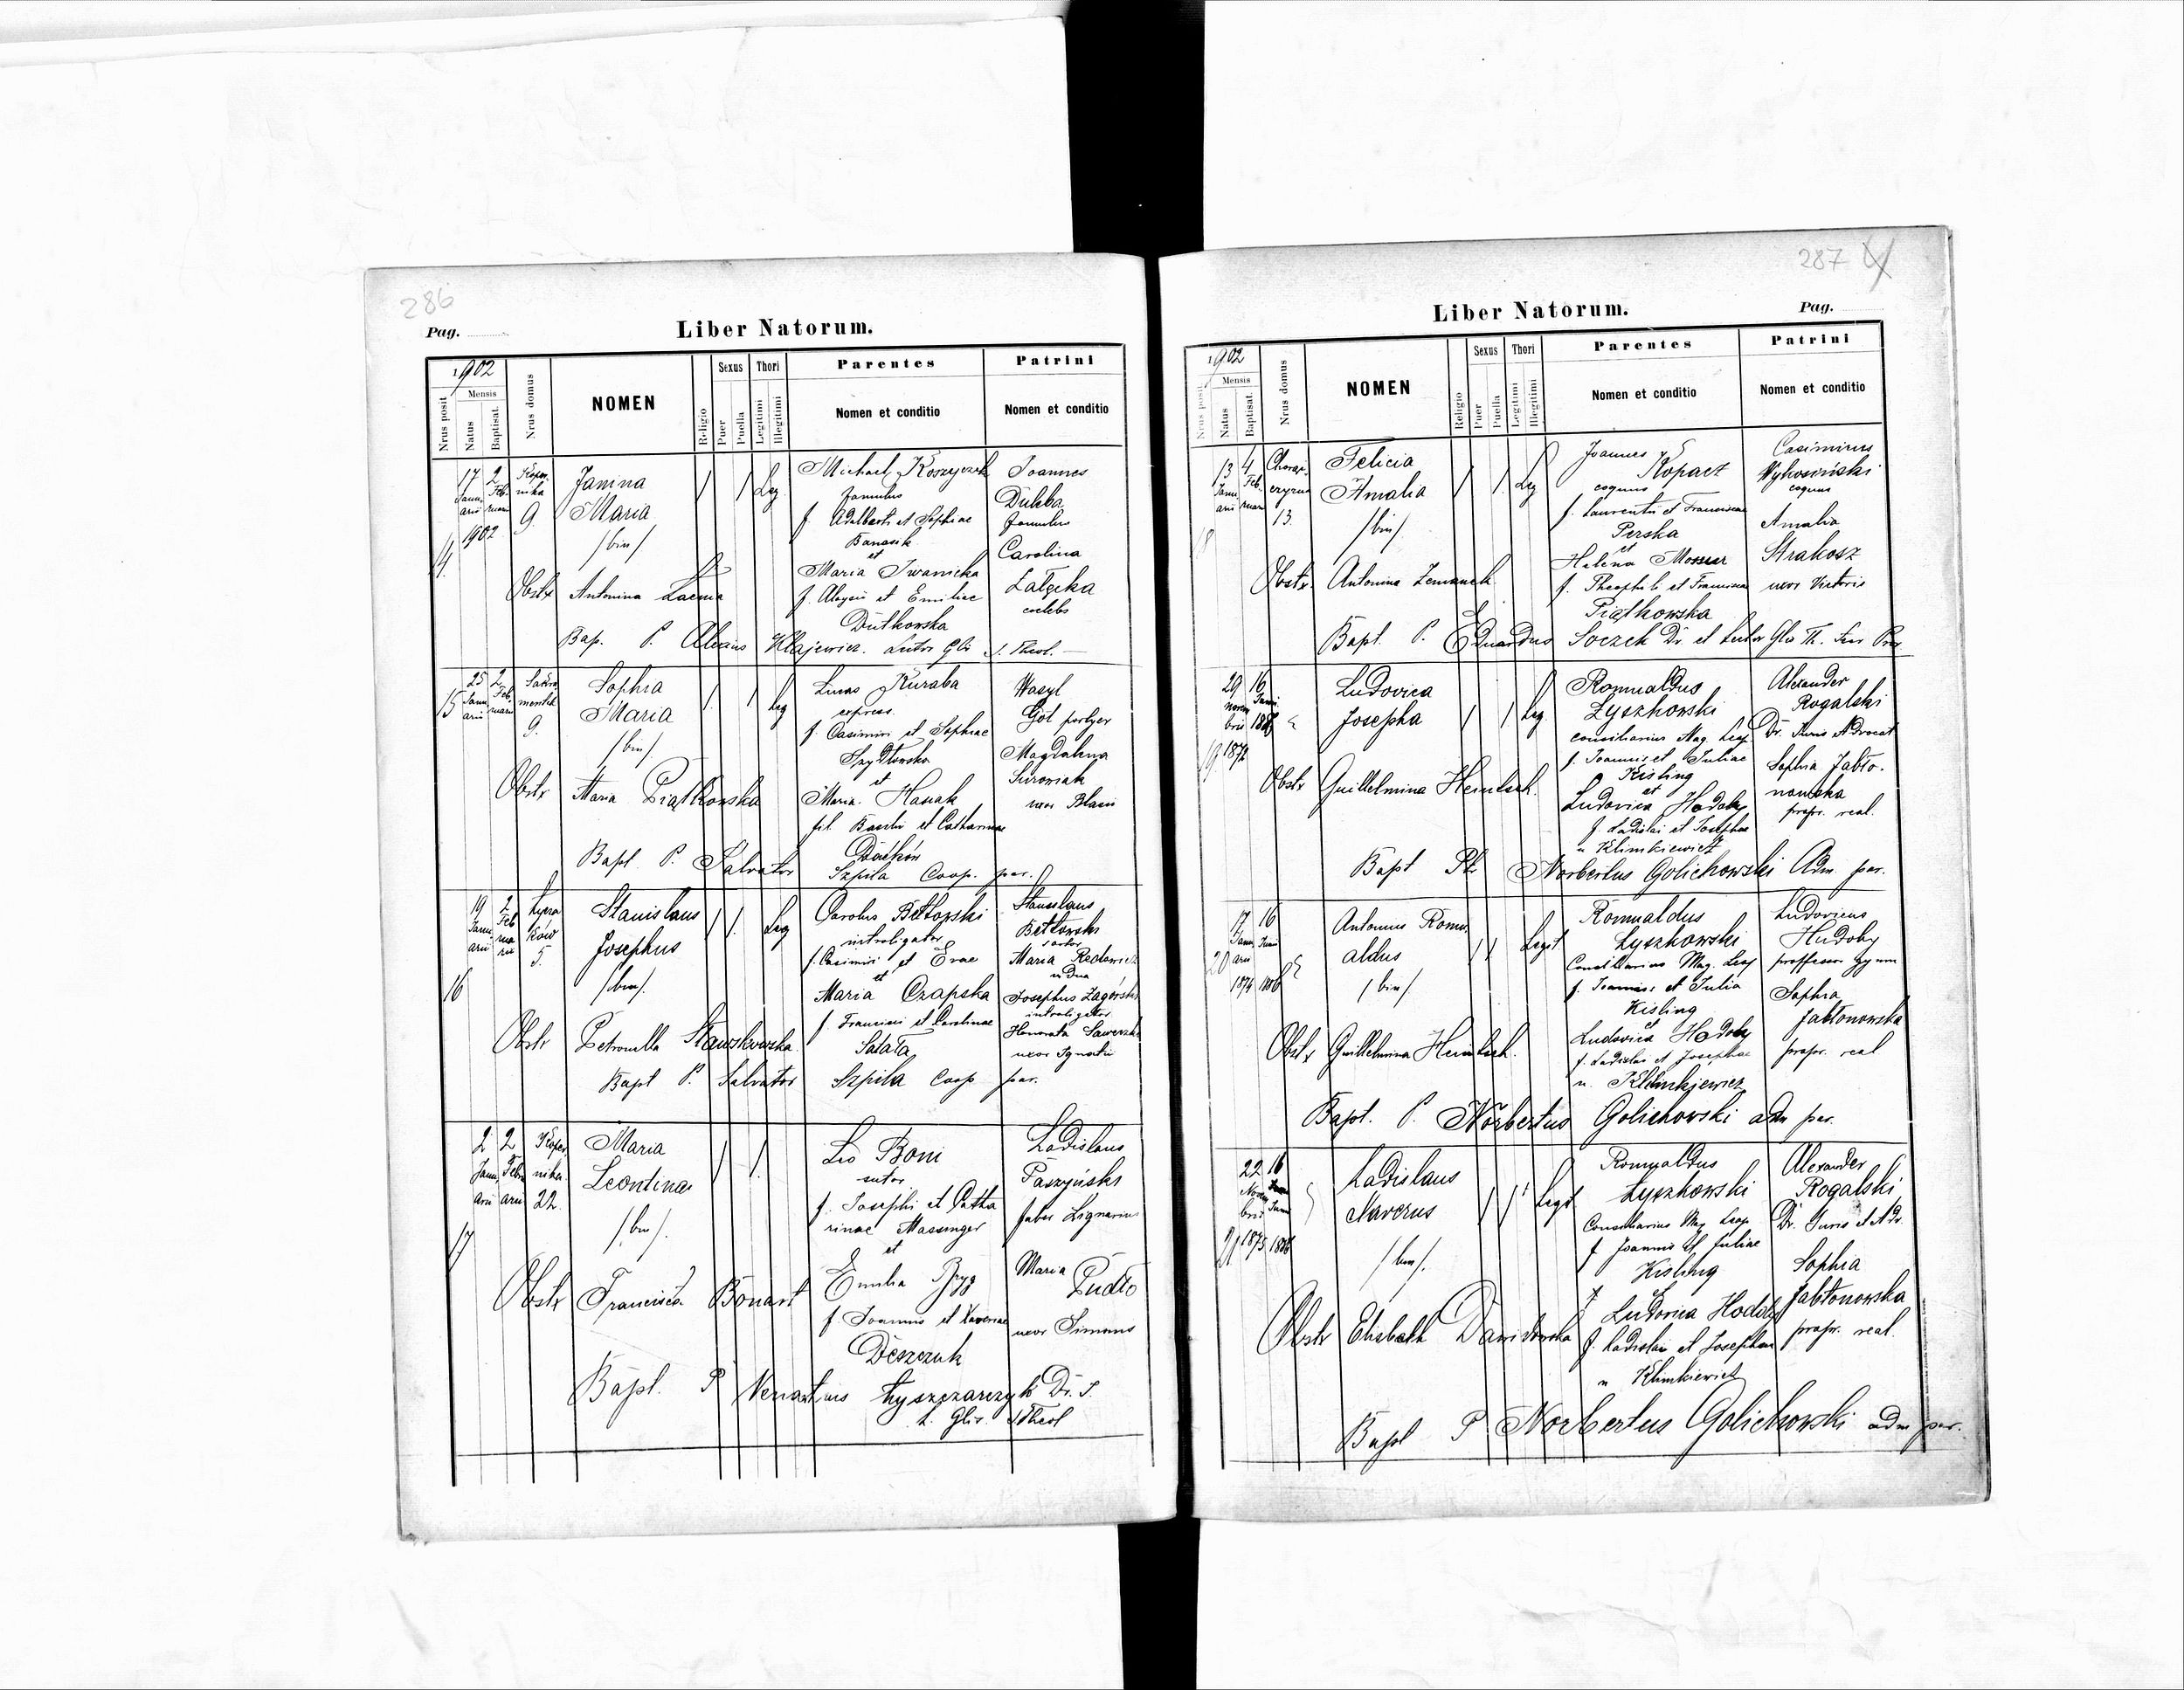 286
Pag.
Liber Natorum.
1902
Mensis
Nrus posit
Natus
Baptisat.
Nrus domus
NOMEN
Religio
Sexus
Puer
Puella
Thori
Legitimi
Illegitimi
Parentes
Nomen et conditio
Patrini
Nomen et conditio
14
17 Januarii 1902
2 Februarii
Kopernika
9
Janina
Maria
/bin/
Leg
Michael
famulus
f. Adalberti et Sophiae
Banasik
et
Maria Iwanicka
f. Aloysii et Emiliae
Dutkowska
Joannes
Dubba
famulus
Carolina
Załęcka
coelebs
Obstx Antonina
Bap. P. Alexius Klajewicz. S. Theol.
15
25 Januarii
2 Februarii
Sakramentek
9.
Sophia
Maria
/bin/
Leg
Linus Kuraba
express.
f. Casimiri et Sophiae
Szydłowska
et
Maria Hanak
fil. Basilii et Catharinae
Wasyl
Gół portyer
Magdalena
Surowiak
uxor Blasii
Obstx Maria Piątkowska
Bapt P. Salvator Szpila Coop. par.
16
19 Januarii
2 Februarii
Łyczaków
5.
Stanislaus
Josephus
/bin/
Leg
Carolus Bettowski
introligator
f. Casimiri et Evae
et
Maria Czapska
f. Francisci et Carolinae
Sałata
Stanislaus
Bettowski
sartor
Maria
vidua
Josephus Zagórski
introligator
Honorata
uxor Ignatii
Obstx Petronella
Bapt P. Salvator Szpila Coop par.
17
2 Januarii
2 Februarii
Kopernika
22.
Maria
Leontina
/bin/
Leo Boni
sutor
f. Josephi et Catharinae Massinger
et
Emilia Bryg
f. Joannis et Xaveriae
Deszczuk
Ladislaus
Paszyński
faber Lignarius
Maria
Pudło
uxor Simonis
Obstx Francisca Bonart
Bapt. P Venantius Łyszczarczyk Dr. S.
S Theol
287
Liber Natorum.
Pag.
1902
Mensis
Nrus posit
Natus
Baptisat.
Nrus domus
NOMEN
Religio
Sexus
Puer
Puella
Thori
Legitimi
Illegitimi
Parentes
Nomen et conditio
Patrini
Nomen et conditio
18
13 Januarii
4 Februarii
13.
Felicia
Amalia
/bin/
Leg
Joannes
Kopacz
coquus
f. Laurentii et Franciscae
Perska
et
Helena Mosser
f. Theophili et Franciscae
Piątkowska
Casimirus
Wykosiński
coquus
Amalia
Strakosz
uxor Victoris
Obstx. Antonina Zemanek
Bapt. P. Eduardus Soczek Dr. et
19
29 Novembris 1872
16 Junii 1886
Ludovica
Josepha
Leg
Romualdus
Łyszkowski
consiliarius Mag. Leop
f. Joannis et Juliae
Kisling
et
Ludovica Hodoby
f. Ladislai et Josephae
n Klimkiewicz
Alexander
Rogalski
Dr. Juris Advocat
Sophia Jabłonowska
propr. real.
Obstx Guillelmina Heinlsch.
Bapt Pr Norbertus Golichowski Adm. par.
20
17 Januarii 1874
16 Junii 1886
Antonius Romualdus
/bin/
Legit
Romualdus
Łyszkowski
Consiliarius Mag. Leop
f. Joannis et Julia
Kisling
et
Ludovica Hodoby
f. Ladislai et Josephae
n. Klimkiewicz
Ludovicus
Hudoby
proffessor gymn
Sophia
Jabłonowska
propr. real
Obstx Guillelmina Heinlsch.
Bapt. P. Norbertus Golichowski adm par.
21
22 Novembris 1875
16 Junii 1886
Ladislaus
Xaverus
/bin/.
Legit
Romualdus
Łyszkowski
Consiliarius Mag Leop
f Joannis et Juliae
Kisling
et
Ludovica Hodoby
f. Ladislai et Josephae
n Klimkiewicz
Alexander
Rogalski
Dr. Juris et Adv.
Sophia
Jabłonowska
propr. real.
Obstx Elisabeth Dawidowska
Bapt P Norbertus Golichowski adm par.